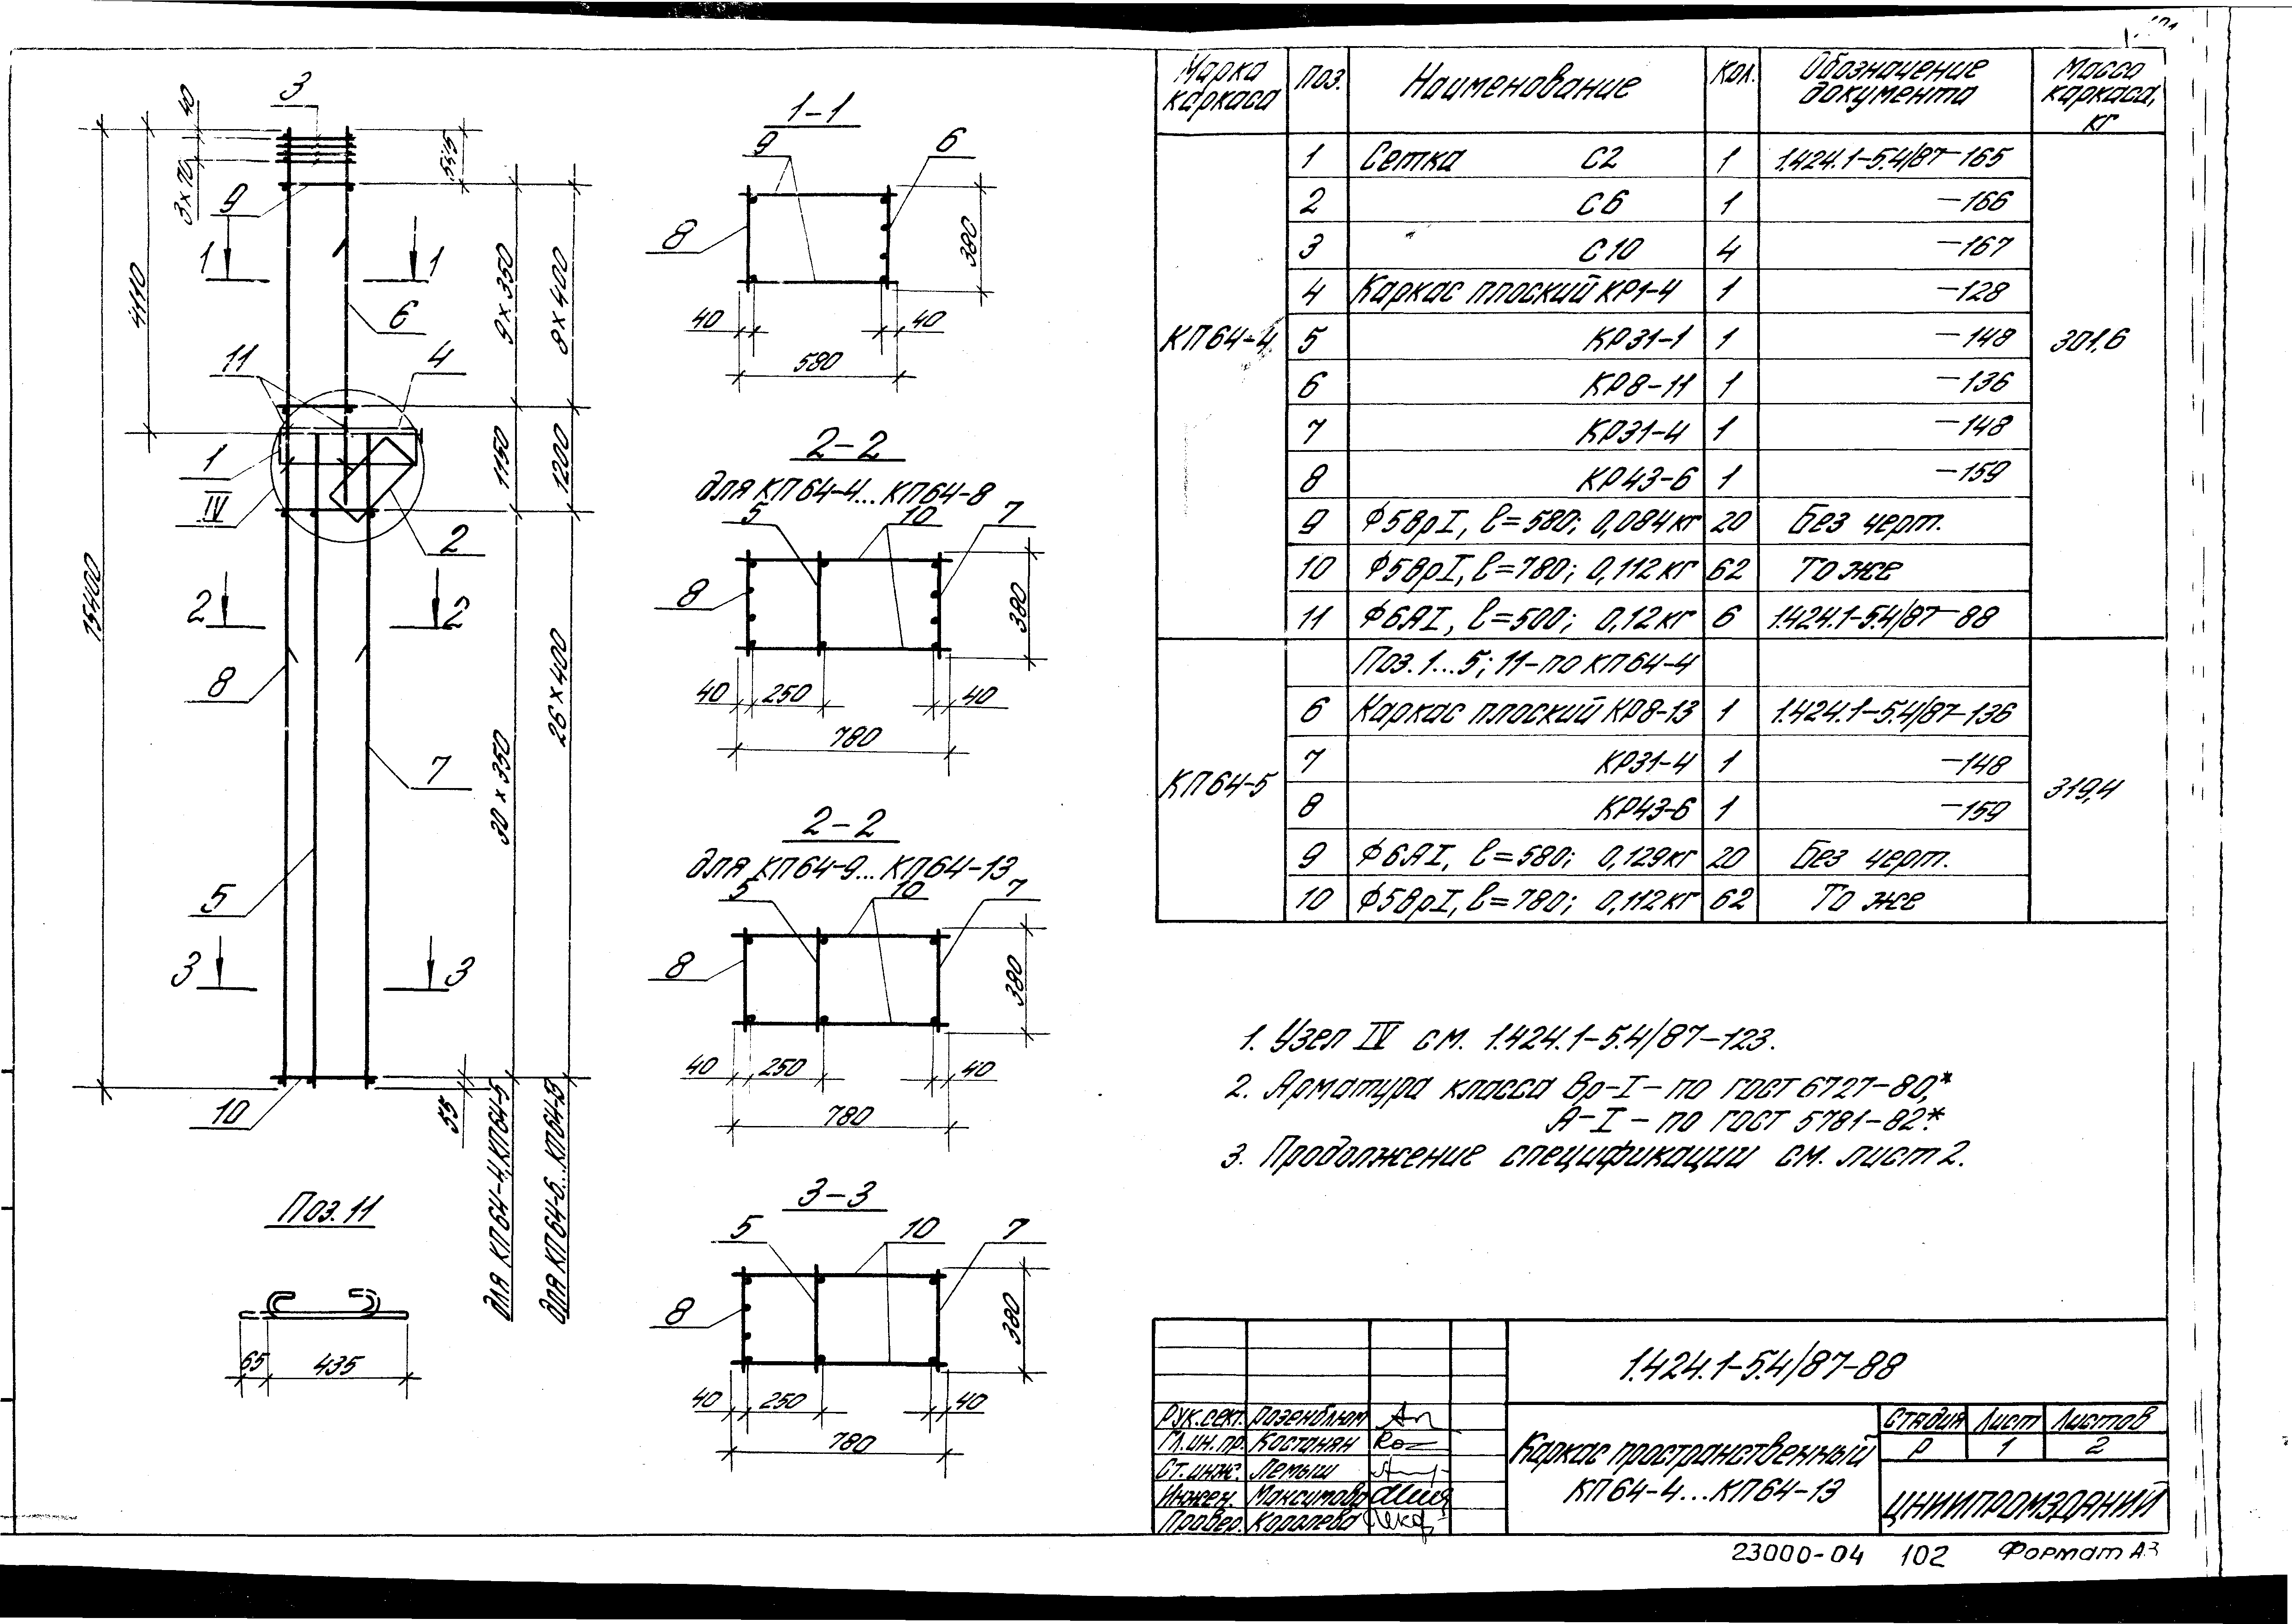 Марка каркаса | Поз. | Наименование | Кол. | Обозначение документа | Масса каркаса, кг
КП64-4 | 301,6
1 | Сетка С2 | 1 | 1.424.1-5.4/87-165
2 | С6 | 1 | -166
3 | С10 | 4 | -167
4 | Каркас плоский КР1-4 | 1 | -128
5 | КР31-1 | 1 | -148
6 | КР8-11 | 1 | -136
7 | КР31-4 | 1 | -148
8 | КР43-6 | 1 | -159
9 | Ф5ВрI, l=580; 0,084кг | 20 | Без черт.
10 | Ф5ВрI, l=780; 0,112кг | 62 | То же
11 | Ф6АI, l=500; 0,12кг | 6 | 1.424.1-5.4/87-88
КП64-5 | 319,4
Поз. 1...5; 11-по КП64-4
6 | Каркас плоский КР8-13 | 1 | 1.424.1-5.4/87-136
7 | КР31-4 | 1 | -148
8 | КР43-6 | 1 | -159
9 | Ф6АI, l=580; 0,129кг | 20 | Без черт.
10 | Ф5ВрI, l=780; 0,112кг | 62 | То же
3
40
3х70
9
1 1
4110
6
11 4
1
IV
2
15400
2 2
8
7
5
3 3
10
55
9х350
8х400
1150
1200
30х350
26х400
для КП64-4, КП64-5
для КП64-6...КП64-13
1-1
9 6
8
380
40 40
580
2-2
для КП64-4...КП64-8
5 10 7
8
380
40 250 40
780
2-2
для КП64-9...КП64-13
5 10 7
8
380
40 250 40
780
3-3
5 10 7
8
380
40 250 40
780
Поз. 11
65 435
1. Узел IV см. 1.424.1-5.4/87-123.
2. Арматура класса Вр-I - по ГОСТ 6727-80*,
А-I - по ГОСТ 5781-82*.
3. Продолжение спецификации см. лист 2.
1.424.1-5.4/87-88
Рук.сект. Розенблюм
Гл.ин.пр. Костанян
Ст.инж. Лемыш
Инжен. Максимова
Провер. Королева
Каркас пространственный
КП64-4...КП64-13
Стадия Лист Листов
Р 1 2
ЦНИИПРОМЗДАНИЙ
23000-04 102 Формат А3